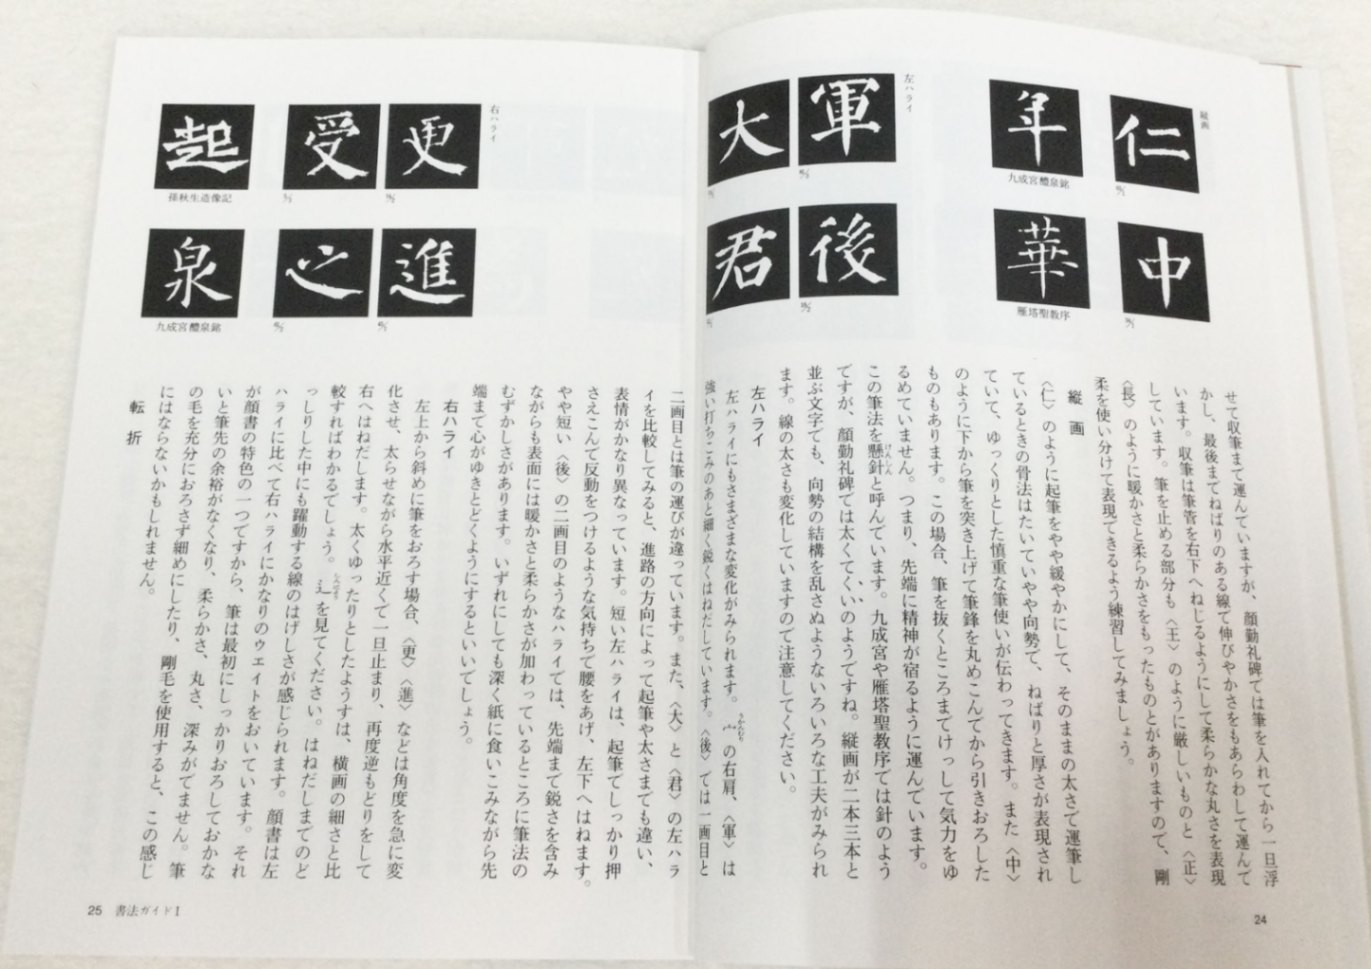 縦画
仁
中
年
九成宮醴泉銘
華
雁塔聖教序
左ハライ
軍
後
大
君
せて収筆まで運んでいますが、顔勤礼碑では筆を入れてから一旦浮
かし、最後までねばりのある線で伸びやかさをもあらわして運んで
います。収筆は筆管を右下へねじるようにして柔らかな丸さを表現
しています。筆を止める部分も〈王〉のように厳しいものと〈正〉
〈長〉のように暖かさと柔らかさをもったものとがありますので、剛
柔を使い分けて表現できるよう練習してみましょう。
縦画
〈仁〉のように起筆をやや緩やかにして、そのままの太さで運筆し
ているときの骨法はたいていやや向勢で、ねばりと厚さが表現され
ていて、ゆっくりとした慎重な筆使いが伝わってきます。また〈中〉
のように下から筆を突き上げて筆鋒を丸めこんでから引きおろした
ものもあります。この場合、筆を抜くところまでけっして気力をゆ
るめていません。つまり、先端に精神が宿るように運んでいます。
この筆法を懸針と呼んでいます。九成宮や雁塔聖教序では針のよう
ですが、顔勤礼碑では太くてくいのようですね。縦画が二本三本と
並ぶ文字でも、向勢の結構を乱さぬようないろいろな工夫がみられ
ます。線の太さも変化していますので注意してください。
左ハライ
左ハライにもさまざまな変化がみられます。宀の右肩、〈軍〉は
強い打ちこみのあと細く鋭くはねだしています。〈後〉では一画目と
24
右ハライ
更
進
受
之
起
孫秋生造像記
泉
九成宮醴泉銘
二画目とは筆の運びが違っています。また、〈大〉と〈君〉の左ハラ
イを比較してみると、進路の方向によって起筆や太さまでも違い、
表情がかなり異なっています。短い左ハライは、起筆でしっかり押
さえこんで反動をつけるような気持ちで腰をあげ、左下へはねます。
やや短い〈後〉の二画目のようなハライでは、先端まで鋭さを含み
ながらも表面には暖かさと柔らかさが加わっているところに筆法の
むずかしさがあります。いずれにしても深く紙に食いこみながら先
端まで心がゆきとどくようにするといいでしょう。
右ハライ
左上から斜めに筆をおろす場合、〈更〉〈進〉などは角度を急に変
化させ、太らせながら水平近くで一旦止まり、再度逆もどりをして
右へはねだします。太くゆったりとしたようすは、横画の細さと比
較すればわかるでしょう。辶を見てください。はねだしまでのど
っしりした中にも躍動する線のはげしさが感じられます。顔書は左
ハライに比べて右ハライにかなりのウェイトをおいています。それ
が顔書の特色の一つですから、筆は最初にしっかりおろしておかな
いと筆先の余裕がなくなり、柔らかさ、丸さ、深みがでません。筆
の毛を充分におろさず細めにしたり、剛毛を使用すると、この感じ
にはならないかもしれません。
転折
25 書法ガイドⅠ